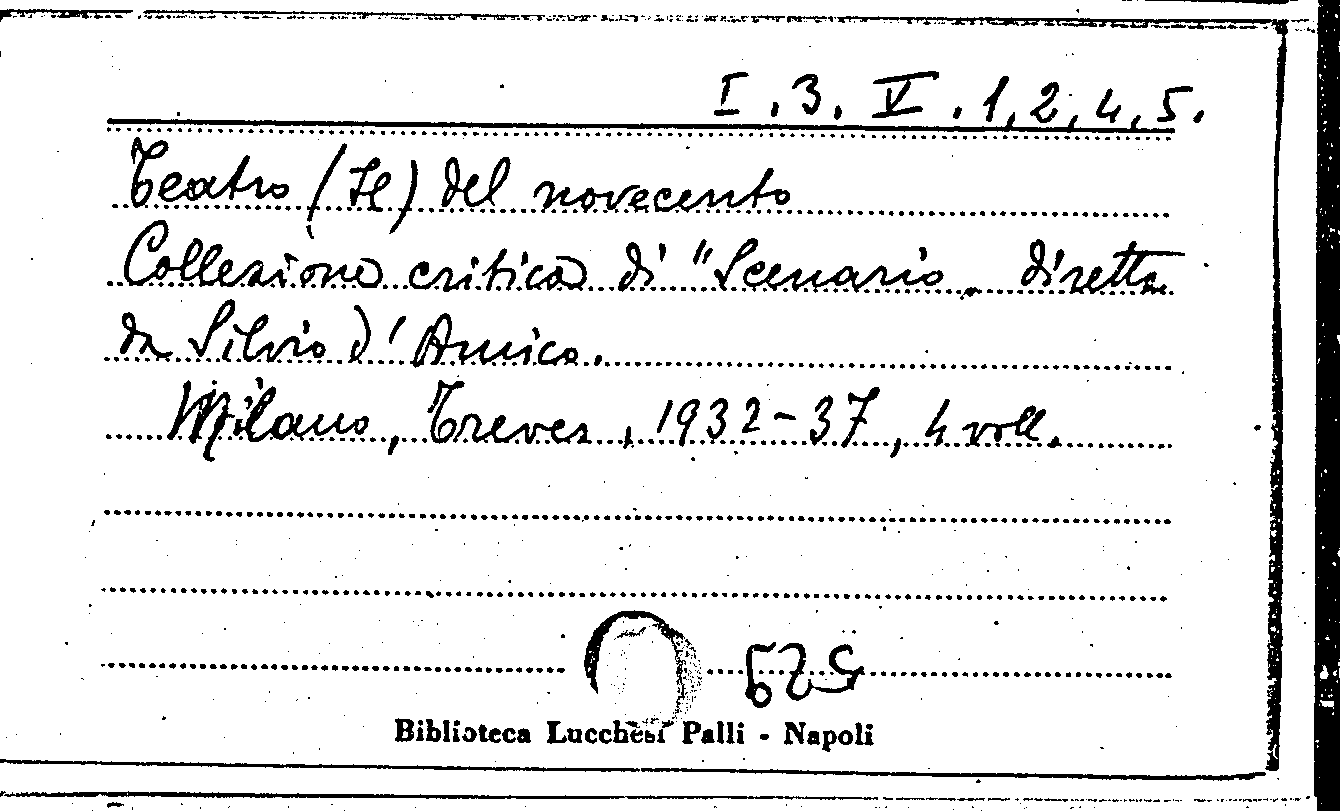 I.3. V.1,2,4,5.
Teatro (Il) del novecento
Collezione critica di "Scenario„ diretta
da Silvio d'Amico.
Milano, Treves, 1932-37, 4 voll.
Biblioteca Lucchesi Palli - Napoli